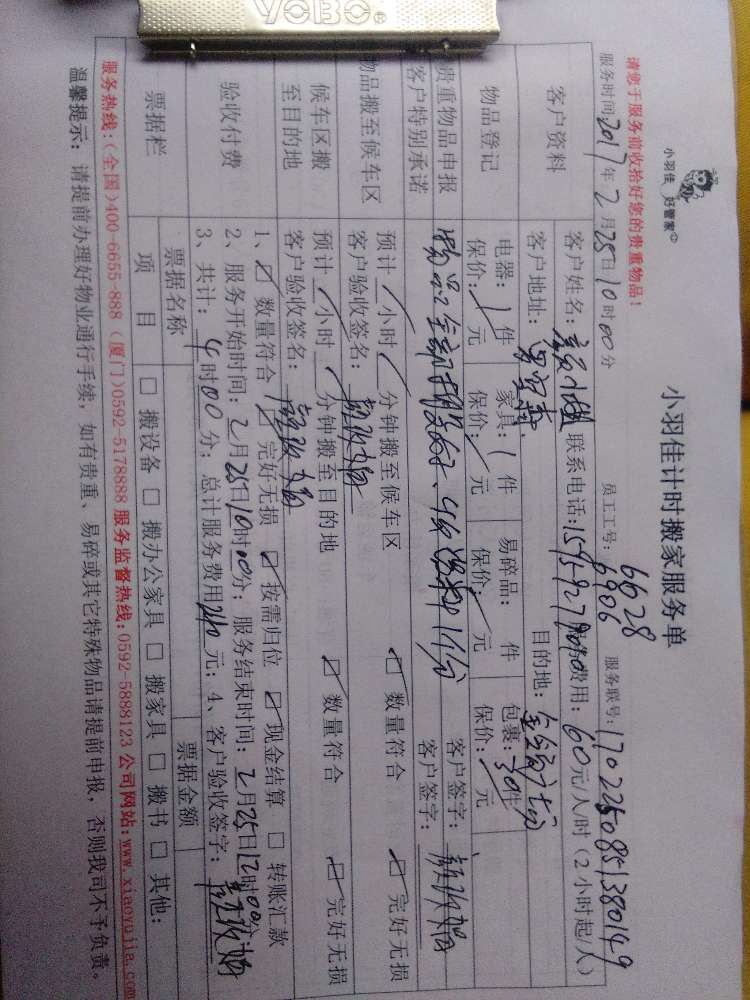 YOBO®
小羽佳 好管家
小羽佳计时搬家服务单
请您于服务前收拾好您的贵重物品！
员工工号：6628 6906
服务联号：
服务时间：2017年2月25日10时00分
客户资料
客户姓名：
联系电话：
服务费用：60元/人/时（2小时起/人）
客户地址：
目的地：
物品登记
电器：1件 家具：1件 易碎品： 件 包裹：30件
保价：/元 保价：/元 保价：/元 保价：/元
贵重物品申报
客户签字：
客户特别承诺
客户签字：
物品搬至候车区
预计/小时/分钟搬至候车区 ☑ 数量符合 ☑ 完好无损
客户验收签名：
候车区搬至目的地
预计/小时/分钟搬至目的地 ☑ 数量符合 ☑ 完好无损
客户验收签名：
验收付费
1、☑ 数量符合 ☑ 完好无损 ☑ 按需归位 ☑ 现金结算 □ 转账汇款
2、服务开始时间：2月25日10时00分；服务结束时间：2月25日12时00分
3、共计：4时00分；总计服务费用240元；4、客户验收签字：
票据栏
票据名称 票据金额
项目 □ 搬设备 □ 搬办公家具 □ 搬家具 □ 搬书 □ 其他：
服务热线：（全国）400-6655-888（厦门）0592-5178888 服务监督热线：0592-5888123 公司网站：www.xiaoyujia.com
温馨提示：请提前办理好物业通行手续，如有贵重、易碎或其它特殊物品请提前申报，否则我司不予负责。